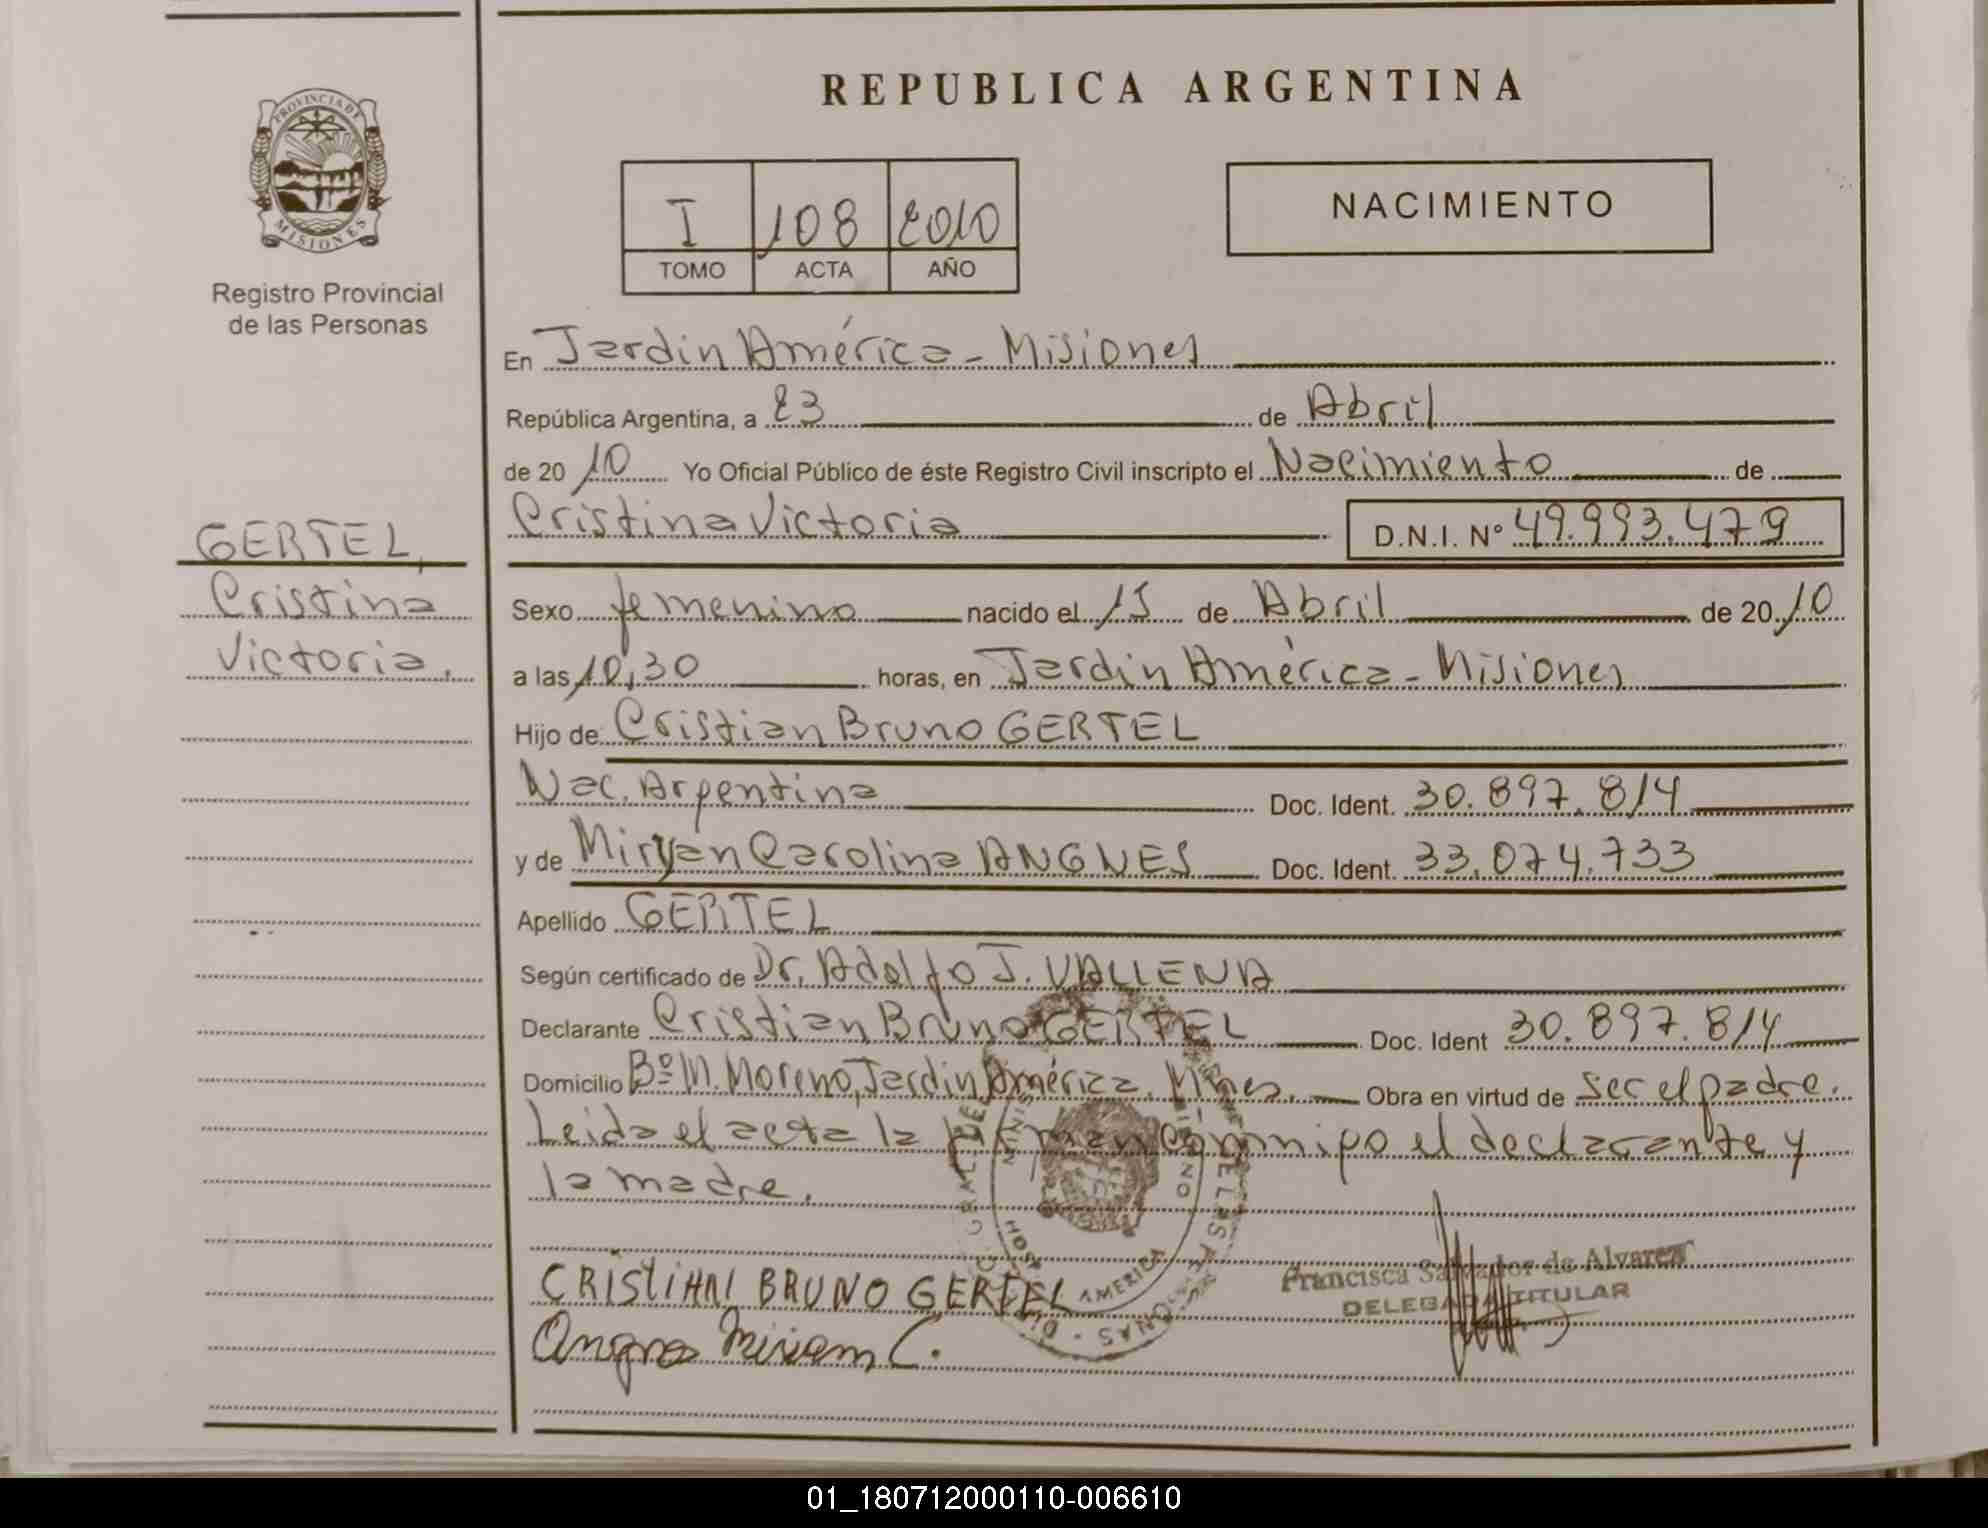 REPUBLICA ARGENTINA
PROVINCIA DE
MISIONES
Registro Provincial
de las Personas
I 108 2010
TOMO ACTA AÑO
NACIMIENTO
En Jardin América - Misiones
República Argentina, a 23 de Abril
de 20 10 Yo Oficial Público de éste Registro Civil inscripto el Nacimiento de
Cristina Victoria D.N.I. N° 49.993.479
GERTEL,
Cristina
Victoria.
Sexo femenino nacido el 15 de Abril de 20 10
a las 10,30 horas, en Jardin América - Misiones
Hijo de Cristian Bruno GERTEL
Nac. Argentina Doc. Ident. 30.897.814
y de Miryan Carolina ANGNES Doc. Ident. 33.074.733
Apellido GERTEL
Según certificado de Dr. Adolfo J. VALLENA
Declarante Cristian Bruno GERTEL Doc. Ident 30.897.814
Domicilio Bº M. Moreno, Jardin América, Mnes. Obra en virtud de ser el padre.
Leida el acta la firman conmigo el declarante y
la madre.
CRISTIAN BRUNO GERTEL
Francisca Salvador de Alvarez
DELEGADA TITULAR
Miriam C.
AMERICA
01_180712000110-006610